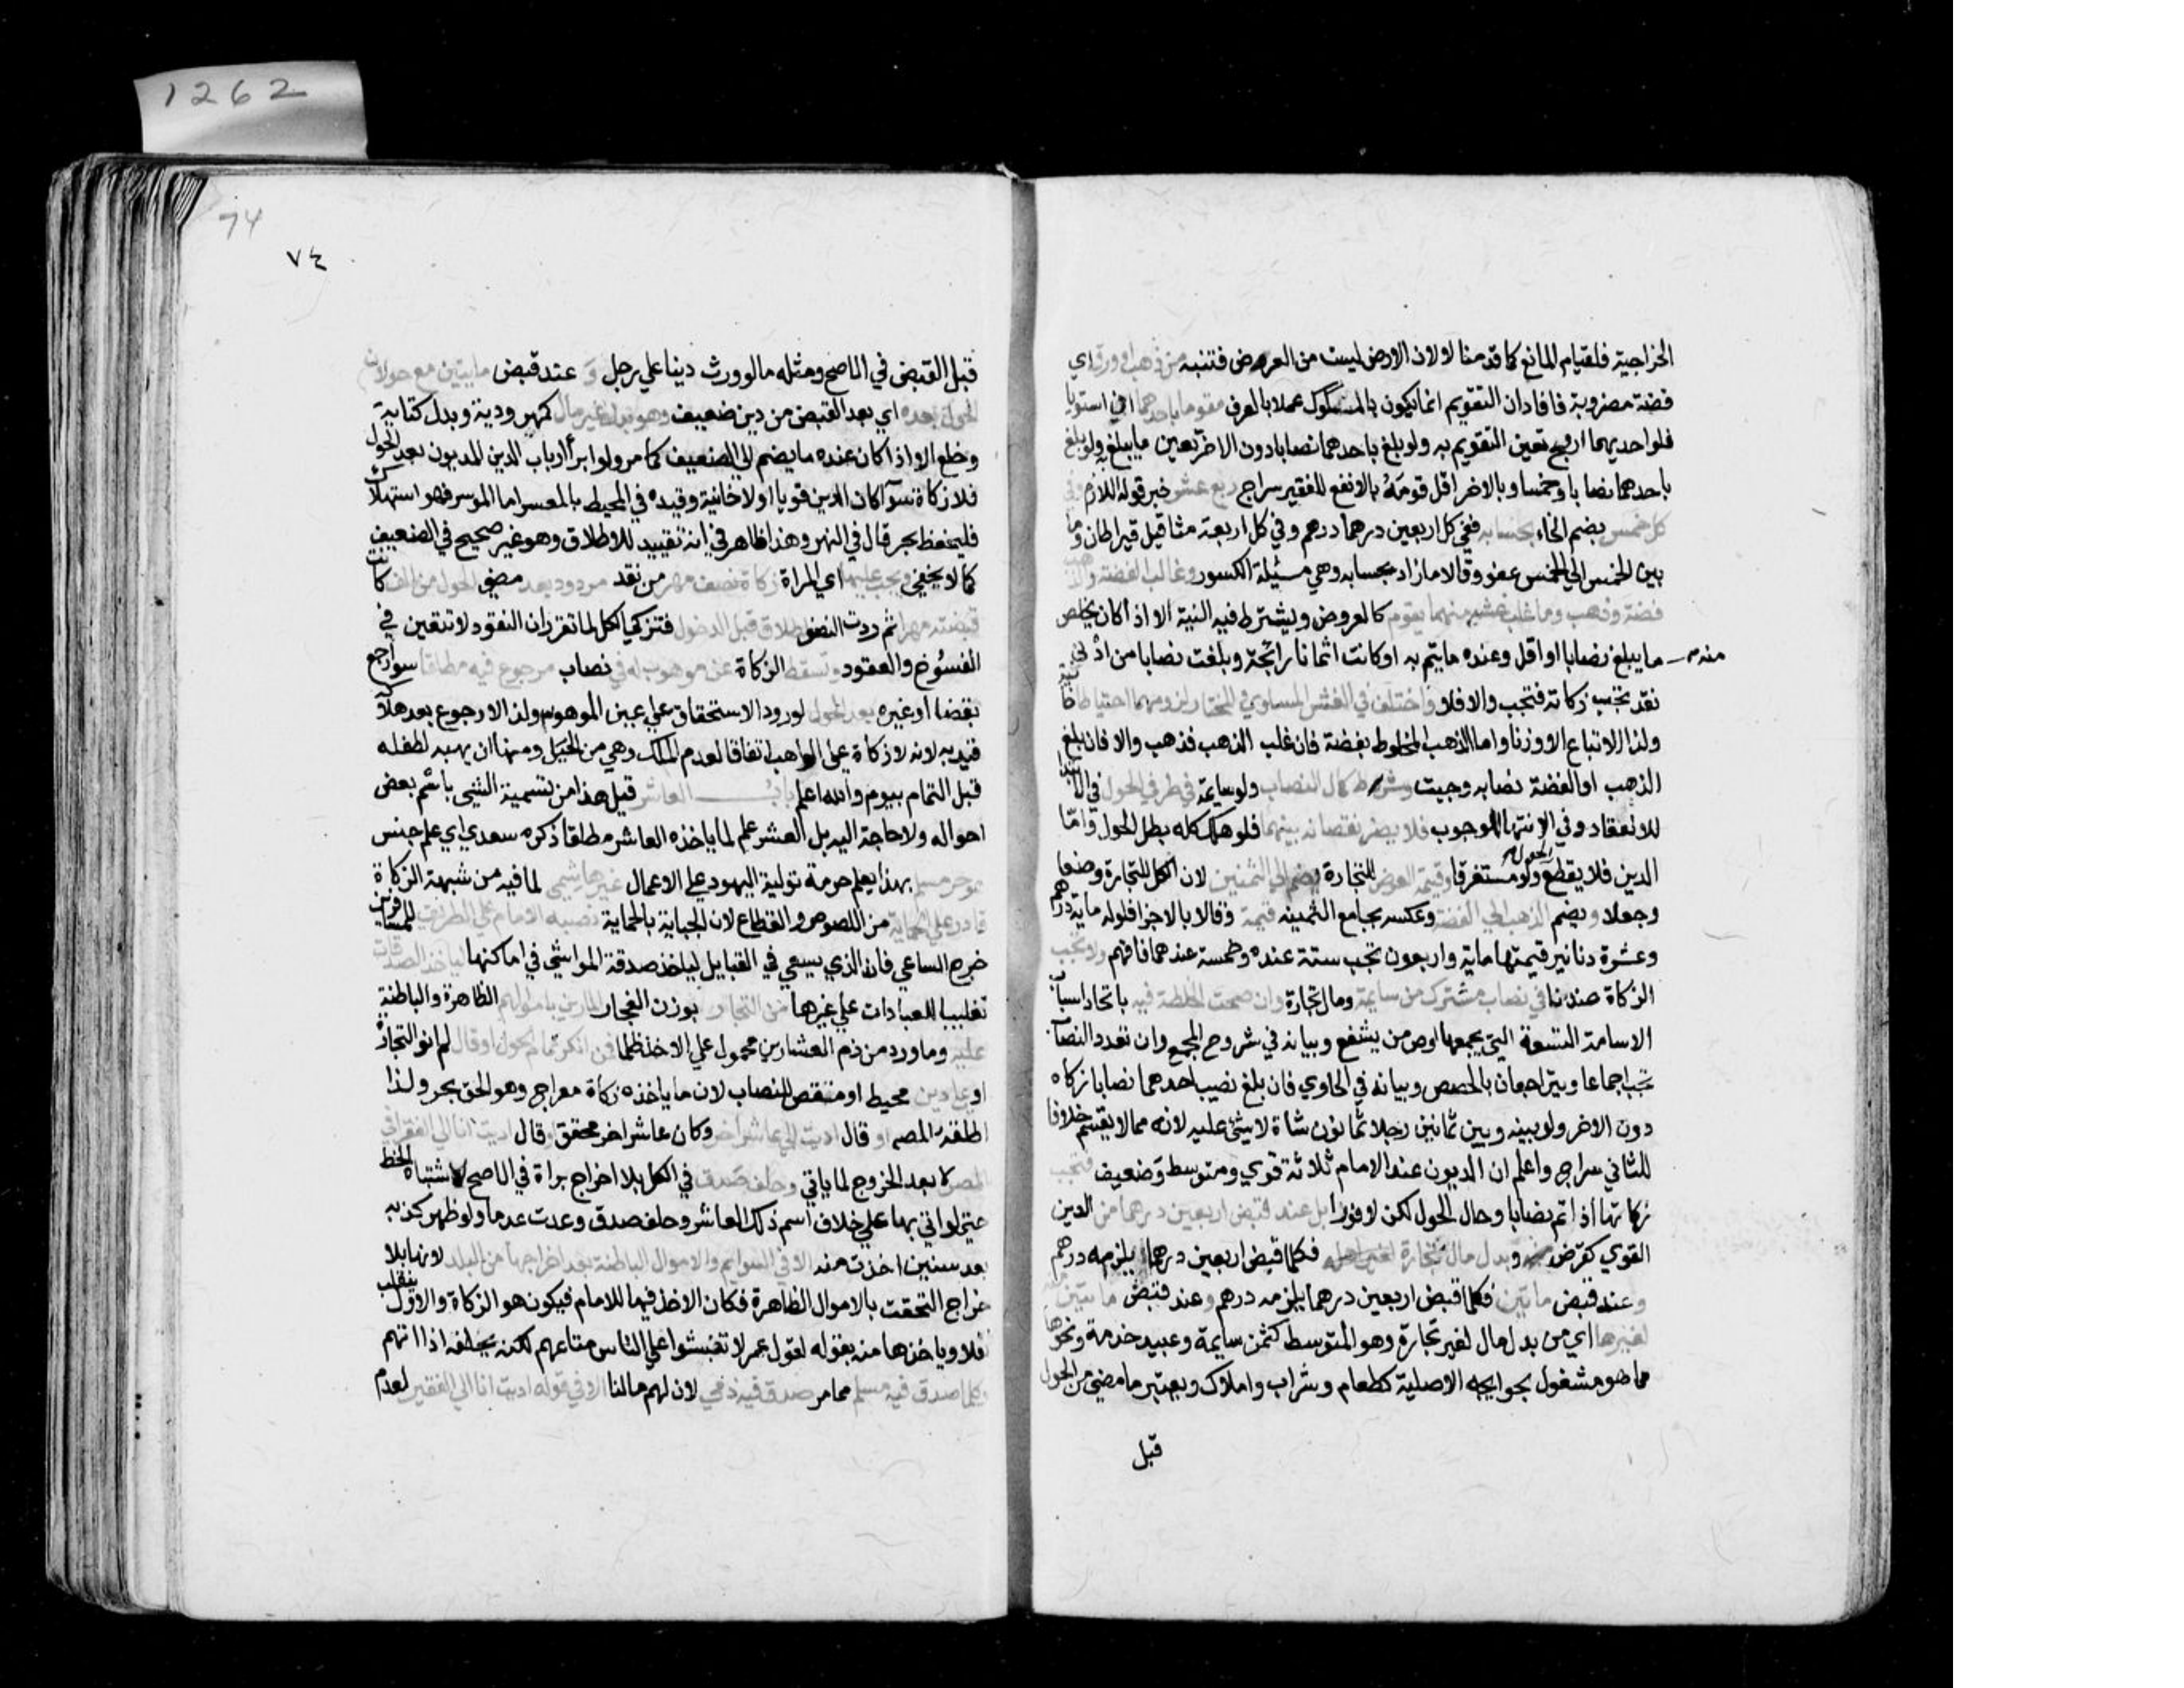 1262
الخراجية فلقيام المانع كما قدمنا لا لان الارض ليست من العروض فتنبه من ذهب او ورق اي
فضة مضروبة فافاد ان التقويم انما يكون بالمسكوك عملا بالعرف مقوما باحدهما ان استويا
فلو احديهما اروج تعين التقويم به ولو بلغ باحدهما نصابا دون الاخر تعين ما يبلغ به ولو بلغ
باحدهما نصابا وخمسا وبالاخر اقل قومه بالانفع للفقير سراج ربع عشر خبر قوله اللازم في
كل خمس بضم الخاء بحسابه ففي كل اربعين درهما درهم وفي كل اربعة مثاقيل قيراطان وما
بين الخمس الي الخمس عفو وقالا ما زاد بحسابه وهي مسئلة الكسور وغالب الفضة والذهب
فضة وذهب وما غلب غشه منهما يقوم كالعروض ويشترط فيه النية الا اذا كان يخلص
منه
ما يبلغ نصابا او اقل وعنده ما يتم به او كانت اثمانا رائجة وبلغت نصابا من ادني
نقد تجب زكاته فتجب والا فلا واختلف في الغش المساوي والمختار لزومها احتياطا خانية
ولذا لا تباع الا وزنا واما الذهب المخلوط بفضة فان غلب الذهب فذهب والا فان بلغ
الذهب او الفضة نصابه وجبت وشرط كمال النصاب ولو سايمة في طرفي الحول في الابتدا
للانعقاد وفي الانتها للوجوب فلا يضر نقصانه بينهما فلو هلك كله بطل الحول واما
الحول
الدين فلا يقطع ولو مستغرقا وقيمة العرض للتجارة تضم الي الثمنين لان الكل للتجارة وضعا
وجعلا ويضم الذهب الي الفضة وعكسه بجامع الثمنيه قيمة وقالا بالاجزا فلو له ماية درهم
وعشرة دنانير قيمتها ماية واربعون تجب ستة عنده وخمسة عندهما فافهم ولا تجب
الزكاة عندنا في نصاب مشترك من سايمة ومال تجارة وان صحت الخلطة فيه باتحاد اسباب
الاسامة التسعة التي يجمعها اوص من يشفع وبيانه في شروح المجمع وان تعدد النصاب
تجب اجماعا ويتراجعان بالحصص وبيانه في الحاوي فان بلغ نصيب احدهما نصابا زكاه
دون الاخر ولو بينه وبين ثمانين رجلا ثمانون شاة لا شئ عليه لانه مما لا يقسم خلافا
للثاني سراج واعلم ان الديون عند الامام ثلاثة قوي ومتوسط وضعيف فتجب
زكاتها اذا تم نصابا وحال الحول لكن لا فورا بل عند قبض اربعين درهما من الدين
القوي كقرض وبدل مال تجارة فكلما قبض اربعين درهما يلزمه درهم
وعند قبض مايتين فكلما قبض اربعين درهما يلزمه درهم وعند قبض مايتين منه
لغيرها اي من بدل مال لغير تجارة وهو المتوسط كثمن سايمة وعبيد خدمة ونحوها
مما هو مشغول بحوايجه الاصلية كطعام وشراب واملاك ويعتبر ما مضي من الحول
قبل
74
٧٤
قبل القبض في الاصح ومثله ما لو ورث دينا علي رجل و عند قبض مايتين مع حولان
الحول بعده اي بعد القبض من دين ضعيف وهو بدل غير مال كمهر ودية وبدل كتابة
وخلع الا اذا كان عنده ما يضم الي الضعيف كما مر ولو ابرأ رب الدين المديون بعد الحول
فلا زكاة سوآ كان الدين قويا اولا خانية وقيده في المحيط بالمعسر اما الموسر فهو استهلاك
فليحفظ بحر قال في النهر وهذا ظاهر في انه تقييد للاطلاق وهو غير صحيح في الضعيف
كما لا يخفي ويجب عليها اي المراة زكاة نصف مهر من نقد مردود بعد مضي الحول من الف كانت
قبضته مهرا ثم ردت النصف لطلاق قبل الدخول فتزكي الكل لما تقرر ان النقود لا تتعين في
الفسوخ والعقود وتسقط الزكاة عن موهوب له في نصاب مرجوع فيه مطلقا سوا رجع
بقضا او غيره بعد الحول لورود الاستحقاق علي عين الموهوب ولذا لا رجوع بعد هلاكه
قيد به لانه لا زكاة علي الواهب اتفاقا لعدم الملك وهي من الحيل ومنها ان يهبه لطفله
قبل التمام بيوم والله اعلم باب العاشر قيل هذا من تسمية الشيي باسم بعض
احواله ولا حاجة اليه بل العشر علم لما ياخذه العاشر مطلقا ذكره سعدي اي علم جنس
هو حر مسلم بهذا يعلم حرمة تولية اليهود علي الاعمال غير هاشمي لما فيه من شبهة الزكاة
قادر علي الحماية من اللصوص والقطاع لان الجباية بالحماية نصبه الامام علي الطريق للمسافرين
خرج الساعي فانه الذي يسعي في القبايل لياخذ صدقة المواشي في اماكنها لياخذ الصدقات
تغليبا للعبادات علي غيرها من التجار بوزن الفجار المارين باموالهم الظاهرة والباطنة
عليه وما ورد من ذم العشارين محمول علي الاخذ ظلما فمن انكر تمام الحول او قال لم انو التجارة
او علي دين محيط او منقص للنصاب لان ما ياخذه زكاة معراج وهو الحق بحر ولذا
اطلقه المصه او قال اديت الي عاشر اخر وكان عاشر اخر محقق وقال اديت انا الي الفقرا في
المصر لا بعد الخروج لما ياتي وحلف صدق في الكل بلا اخراج براة في الاصح لاشتباه الخط
حتي لو اتي بها علي خلاف اسم ذلك العاشر وحلف صدق وعدت عدما ولو ظهر كذبه
بعد سنين اخذت منه الا في السوايم والاموال الباطنة بعد اخراجها من البلد لانها بالا
خراج التحقت بالاموال الظاهرة فكان الاخذ فيها للامام فيكون هو الزكاة والاول ينقلب
نفلا وياخذها منه بقوله لقول عمر لا تفتشوا علي الناس متاعهم لكنه يحلفه اذا اتهم
وكلما صدق فيه مسلم مما مر صدق فيه ذمي لان لهم ما لنا الا في قوله اديت انا الي الفقير لعدم